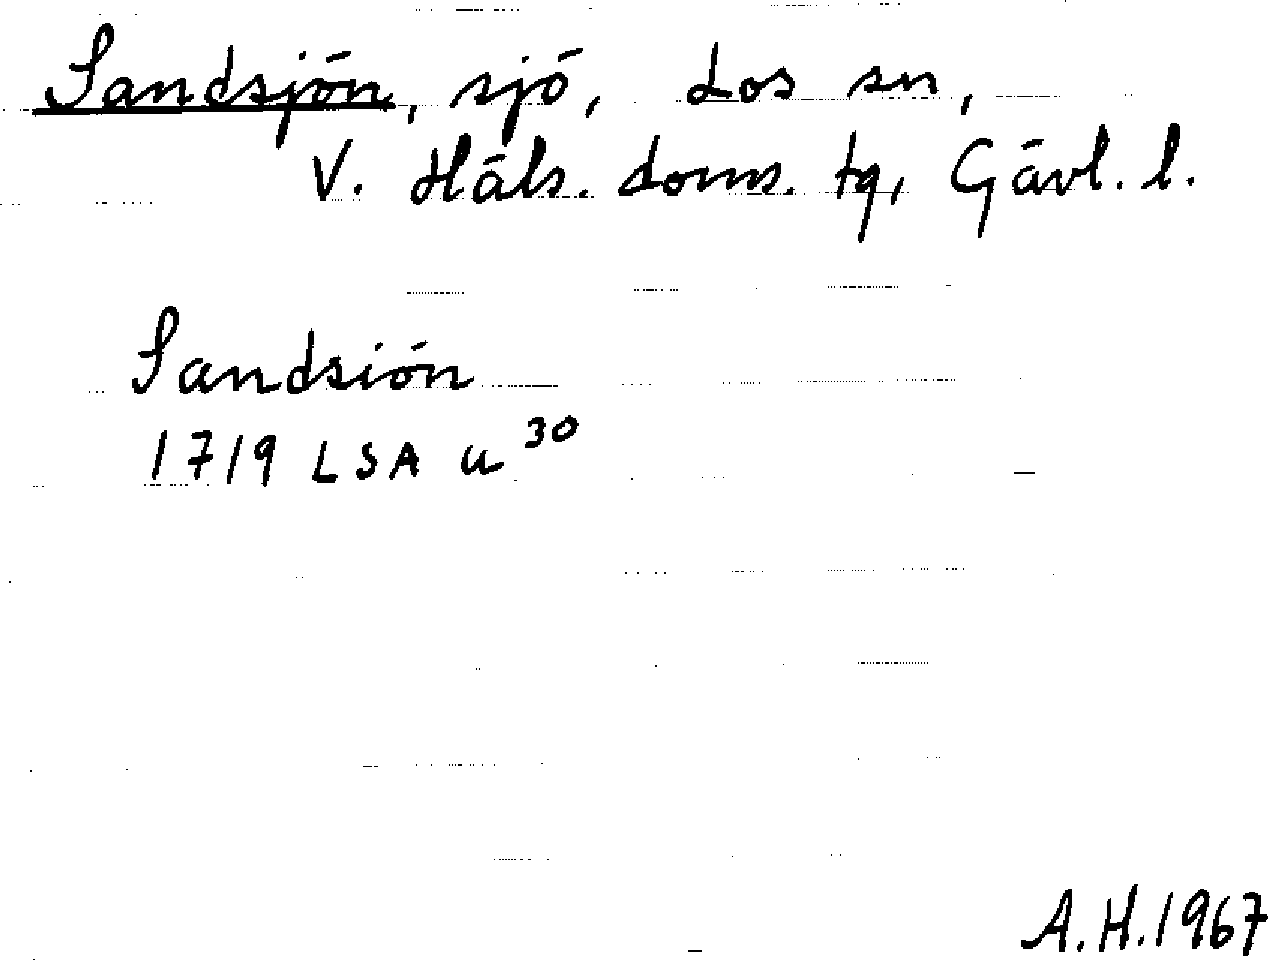 Sandsjön, sjö, Los sn,
V. Häls. doms. tg, Gävl. l.
Sandsiön
1719 LSA u 30
A.H.1967